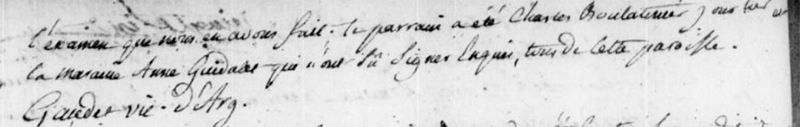 l'examen que nous en avons fait. le parrain a été Charles Boulatinier
la maraine Anne Guidalet qui n'ont su signer Enquis, tous de cette paroisse.
Gaudet vic. d'Arg.